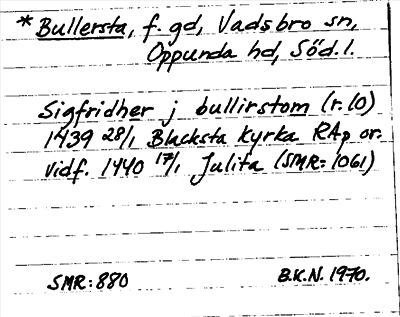 * Bullersta, f. gd, Vadsbro sn,
Oppunda hd, Söd. l.
Sigfridher j bullirstom (r. 10)
1439 28/1 Blacksta kyrka RAp or.
Vidf. 1440 17/1 Julita (SMR: 1061)
SMR: 880 B.K.N. 1970.